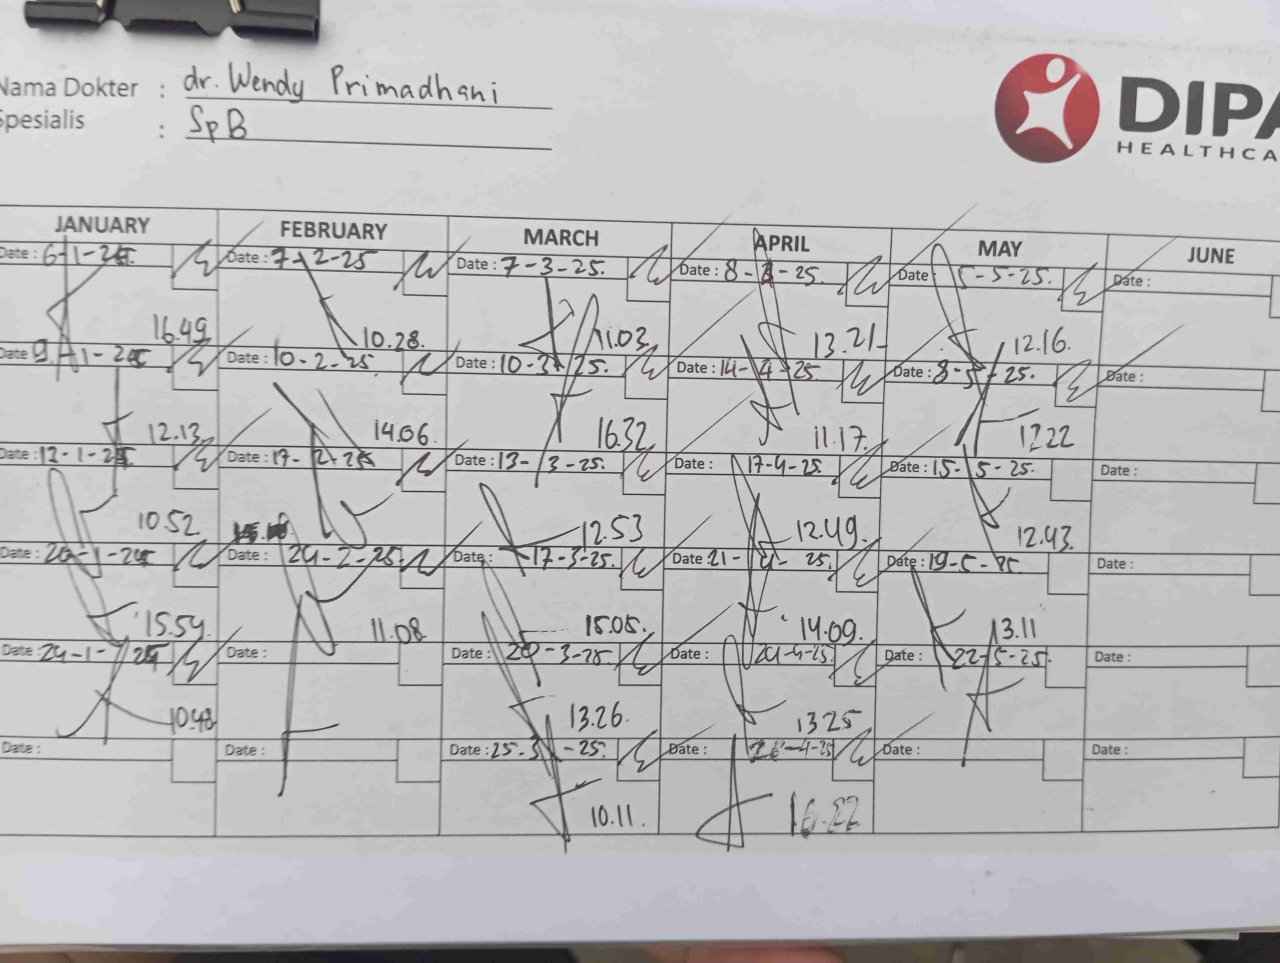 Nama Dokter : dr. Wendy Primadhani
Spesialis : SpB
DIPA
HEALTHCA
JANUARY FEBRUARY MARCH APRIL MAY JUNE
Date : 6-1-25 Date : 7-2-25 Date : 7-3-25. Date : 8-4-25. Date 5-5-25. Date :
16.49 10.28. 11.03. 13.21 12.16.
Date 9-1-25 Date : 10-2-25. Date : 10-3-25. Date : 14-4-25. Date : 8-5-25. Date :
12.13 14.06. 16.32 11.17. 12.22
Date : 12-1-25 Date : 17-2-25 Date : 13-3-25. Date : 17-4-25 Date : 15-5-25. Date :
10.52 12.53 12.49. 12.43.
Date : 20-1-25 Date : 24-2-25. Date : 17-3-25. Date : 21-4-25. Date : 19-5-25. Date :
15.54. 11.08 15.05. 14.09. 13.11
Date : 24-1-25 Date : Date : 20-3-25. Date : 24-4-25. Date : 22-5-25. Date :
10.48 13.26. 13.25
Date : Date : Date : 25-3-25. Date : 28-4-25 Date : Date :
10.11. 16.22